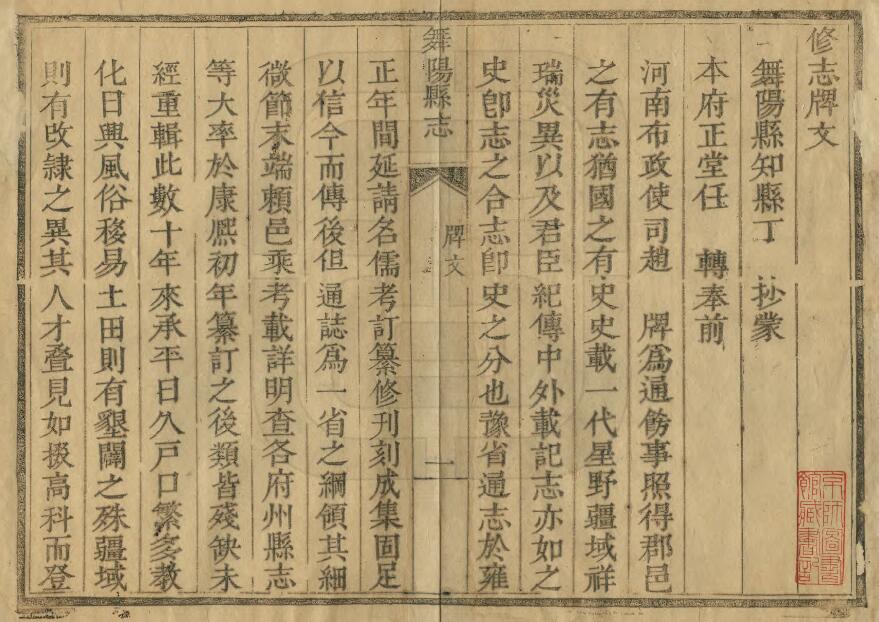 修志牌文
舞陽縣知縣丁 抄蒙
本府正堂任 轉奉前
河南布政使司趙 牌爲通飭事照得郡邑
之有志猶國之有史史載一代星野疆域祥
瑞災異以及君臣紀傳中外載記志亦如之
史卽志之合志卽史之分也豫省通志於雍
舞陽縣志 牌文 一
正年間延請名儒考訂纂修刊刻成集固足
以信今而傳後但通誌爲一省之綱領其細
微節末端賴邑乘考載詳明查各府州縣志
等大率於康熙初年纂訂之後類皆殘缺未
經重輯此數十年來承平日久戶口繁多教
化日興風俗移易土田則有墾闢之殊疆域
則有改隷之異其人才疊見如掇高科而登
京師圖書
館藏書記